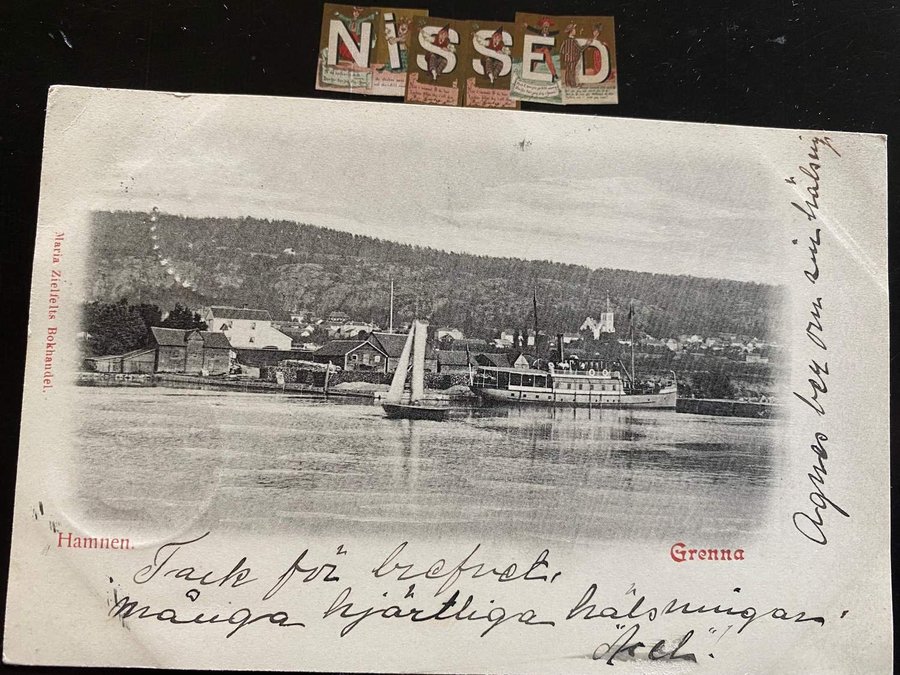 NiSSED
Maria Zielfelts Bokhandel.
Hamnen.
Grenna
Tack för brefvet.
många hjärtliga hälsningar.
"Axel".
Agnes ber om sin hälsnig